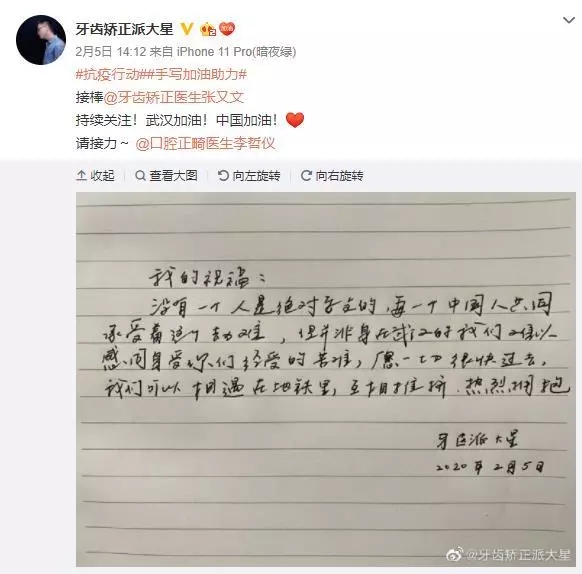 牙齿矫正派大星
2月5日 14:12 来自 iPhone 11 Pro(暗夜绿)
#抗疫行动##手写加油助力#
接棒@牙齿矫正医生张又文
持续关注！武汉加油！中国加油！
请接力～ @口腔正畸医生李晢仪
收起 查看大图 向左旋转 向右旋转
我的祝福：
没有一个人是绝对孑立的，每一个中国人共同
承受着这个劫难，但并非身在武汉的我们难以
感同身受你们经受的苦难，愿一切很快过去，
我们可以相遇在地铁里，互相推挤．热烈拥抱
牙医派大星
2020年2月5日
@牙齿矫正派大星